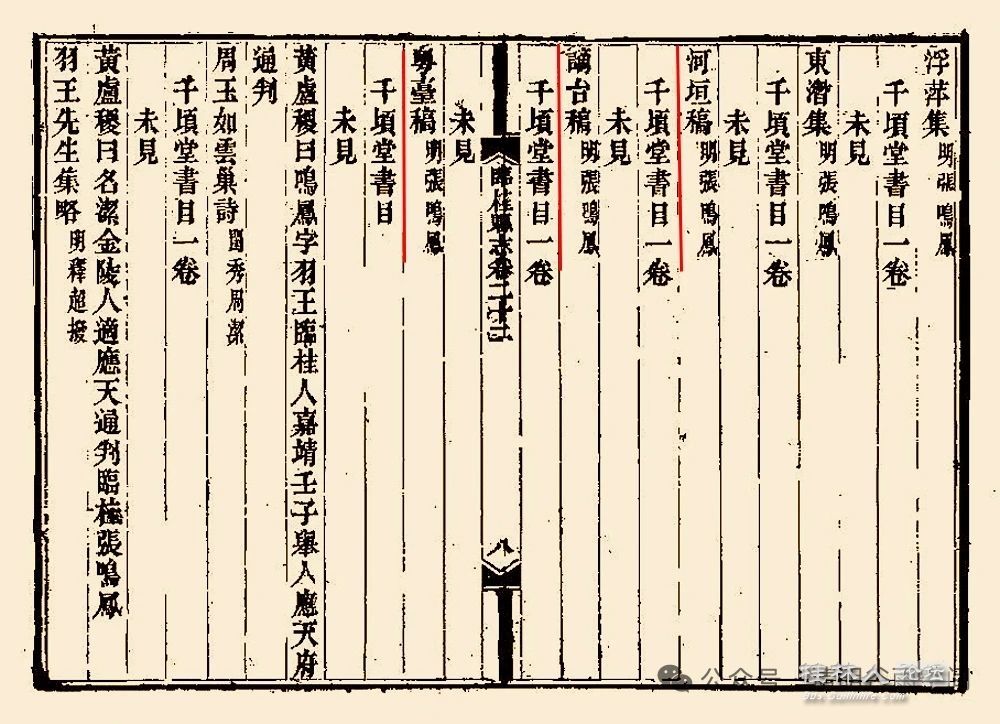 浮萍集 明張鳴鳳
千頃堂書目一卷
未見
東潛集 明張鳴鳳
千頃堂書目一卷
未見
河垣稿 明張鳴鳳
千頃堂書目一卷
未見
謫台稿 明張鳴鳳
千頃堂書目一卷
臨桂縣志卷二十二
八
未見
粵臺稿 明張鳴鳳
千頃堂書目
未見
黃盧稷曰鳴鳳字羽王臨桂人嘉靖壬子舉人應天府
通判
周玉如雲巢詩 閨秀周潔
千頃堂書目一卷
未見
黃盧稷曰名潔金陵人適應天通判臨桂張鳴鳳
羽王先生集略 明釋超撥
公众号
桂林人论坛